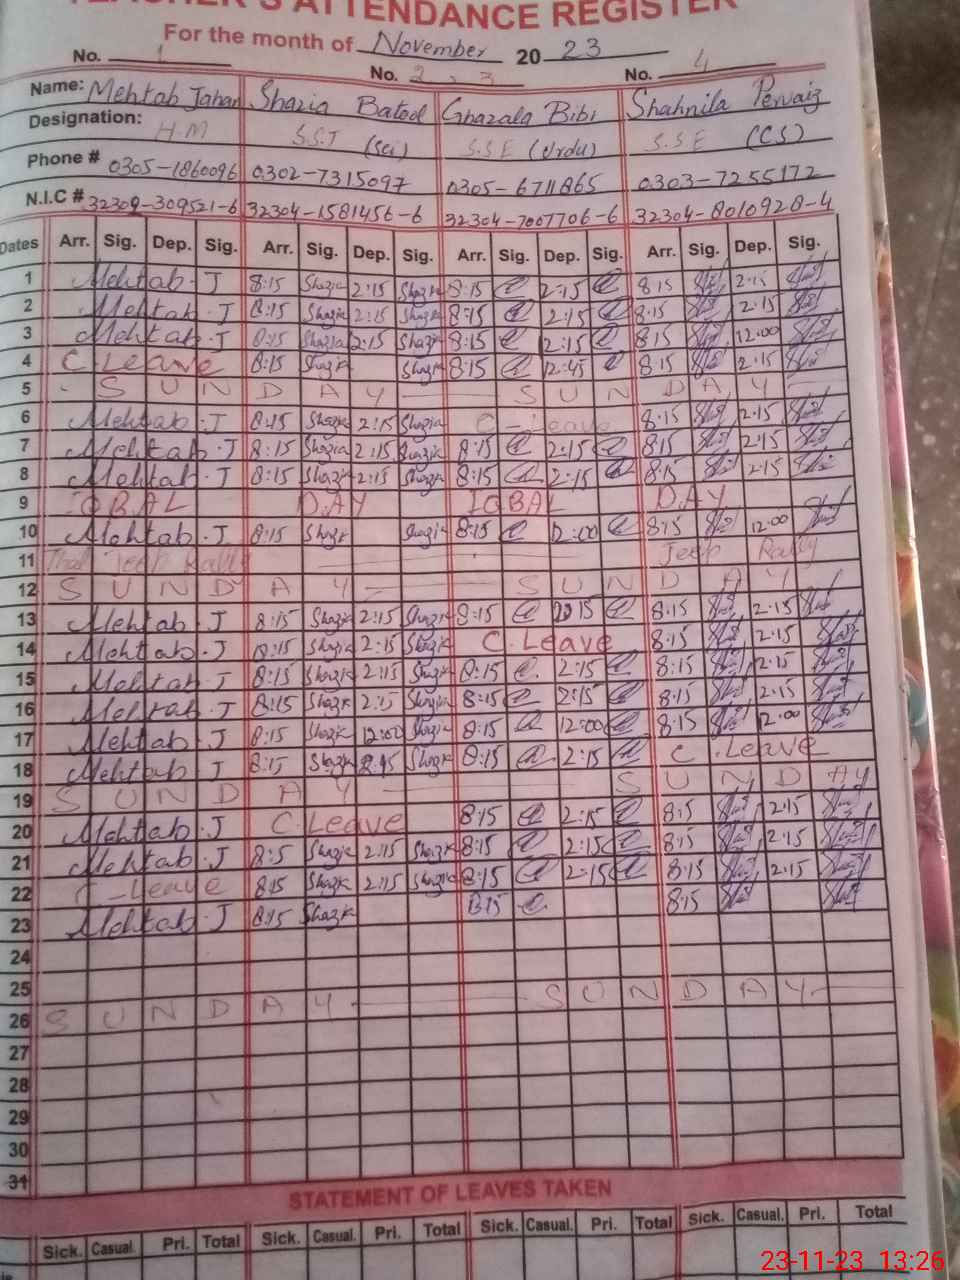 TEACHER'S ATTENDANCE REGISTER
For the month of November 20 23
No. 1 No. 2, 3 No. 4
Name: Mehtab Jahan Shazia Batool Ghazala Bibi Shahnila Pervaiz
Designation: H.M S.S.T (Sci) S.S.E (Urdu) S.S.E (CS)
Phone # 0305-1860096 0302-7315097 0305-6711865 0303-7255172
N.I.C # 32309-309521-6 32304-1581456-6 32304-7007706-6 32304-8010928-4
Dates Arr. Sig. Dep. Sig. Arr. Sig. Dep. Sig. Arr. Sig. Dep. Sig. Arr. Sig. Dep. Sig.
1 Mehtab.J 8:15 Shazia 2:15 Shazia 8:15 2:15 8:15 2:15
2 Mehtab.J 8:15 Shazia 2:15 Shazia 8:15 2:15 8:15 2:15
3 Mehtab.J 8:15 Shazia 2:15 Shazia 8:15 2:15 8:15 12:00
4 C.Leave 8:15 Shazia Shazia 8:15 12:45 8:15 2:15
5 SUNDAY SUNDAY
6 Mehtab.J 8:15 Shazia 2:15 Shazia C-Leave 8:15 2:15
7 Mehtab.J 8:15 Shazia 2:15 Shazia 8:15 2:15 8:15 2:15
8 Mehtab.J 8:15 Shazia 2:15 Shazia 8:15 2:15 8:15 2:15
9 IQBAL DAY IQBAL DAY
10 Mehtab.J 8:15 Shazia Shazia 8:15 12:00 8:15 12:00
11 Thal Jeep Rally Jeep Rally
12 SUNDAY SUNDAY
13 Mehtab.J 8:15 Shazia 2:15 Shazia 8:15 8:15 2:15
14 Mehtab.J 8:15 Shazia 2:15 Shazia C.Leave 8:15 2:15
15 Mehtab.J 8:15 Shazia 2:15 Shazia 8:15 2:15 8:15 2:15
16 Mehtab.J 8:15 Shazia 2:15 Shazia 8:15 2:15 8:15 2:15
17 Mehtab.J 8:15 Shazia 12:00 Shazia 8:15 12:00 8:15 12:00
18 Mehtab J 8:15 Shazia Shazia 8:15 2:15 C.Leave
19 SUNDAY SUNDAY
20 Mehtab.J C.Leave 8:15 2:15 8:15 2:15
21 Mehtab.J 8:15 Shazia 2:15 Shazia 8:15 2:15 8:15 2:15
22 C-Leave 8:15 Shazia 2:15 Shazia 8:15 2:15 8:15 2:15
23 Mehtab.J 8:15 Shazia 8:15 8:15
24
25
26 SUNDAY SUNDAY
27
28
29
30
31
STATEMENT OF LEAVES TAKEN
Sick. Casual. Pri. Total Sick. Casual. Pri. Total Sick. Casual. Pri. Total Sick. Casual. Pri. Total
23-11-23 13:26